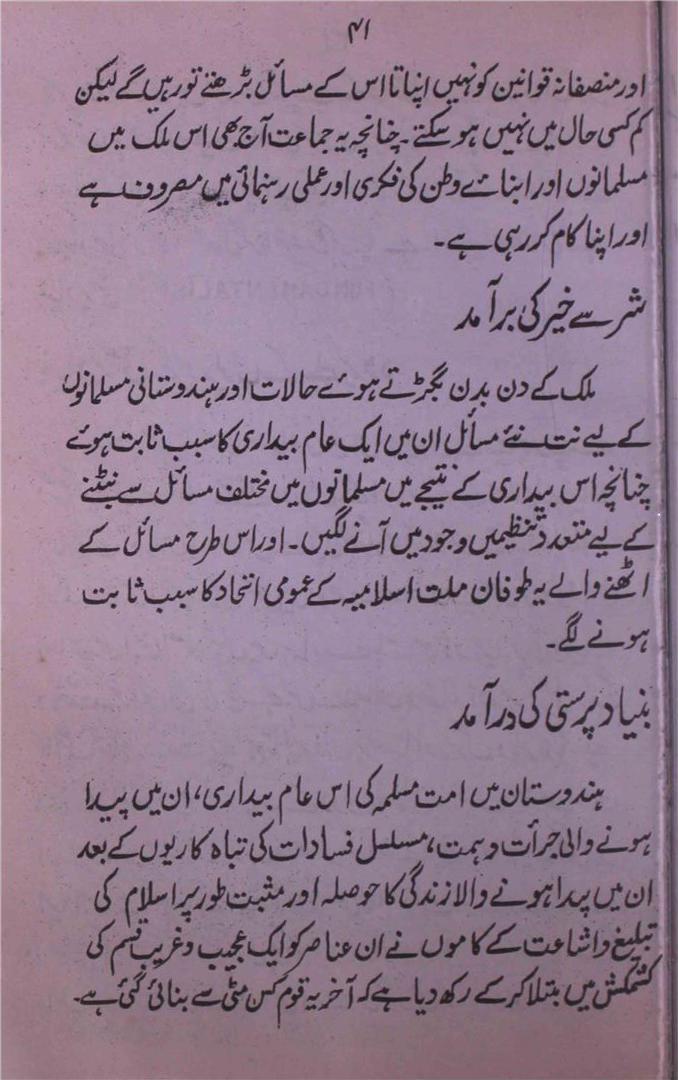 ۴۱
اور منصفانہ قوانین کو نہیں اپناتا اس کے مسائل بڑھتے تو رہیں گے لیکن
کم کسی حال میں نہیں ہو سکتے۔ چنانچہ یہ جماعت آج بھی اس ملک میں
مسلمانوں اور ابنائے وطن کی فکری اور عملی رہنمائی میں مصروف ہے
اور اپنا کام کر رہی ہے۔
شر سے خیر کی برآمد
ملک کے دن بدن بگڑتے ہوئے حالات اور ہندوستانی مسلمانوں
کے لیے نت نئے مسائل ان میں ایک عام بیداری کا سبب ثابت ہوئے
چنانچہ اس بیداری کے نتیجے میں مسلمانوں میں مختلف مسائل سے نبٹنے
کے لیے متعدد تنظیمیں وجود میں آنے لگیں۔ اور اس طرح مسائل کے
اٹھنے والے یہ طوفان ملت اسلامیہ کے عمومی اتحاد کا سبب ثابت
ہونے لگے۔
بنیاد پرستی کی درآمد
ہندوستان میں امت مسلمہ کی اس عام بیداری، ان میں پیدا
ہونے والی جرأت و ہمت، مسلسل فسادات کی تباہ کاریوں کے بعد
ان میں پیدا ہونے والا زندگی کا حوصلہ اور مثبت طور پر اسلام کی
تبلیغ و اشاعت کے کاموں نے ان عناصر کو ایک عجیب و غریب قسم کی
کشمکش میں مبتلا کر کے رکھ دیا ہے کہ آخر یہ قوم کس مٹی سے بنائی گئی ہے۔